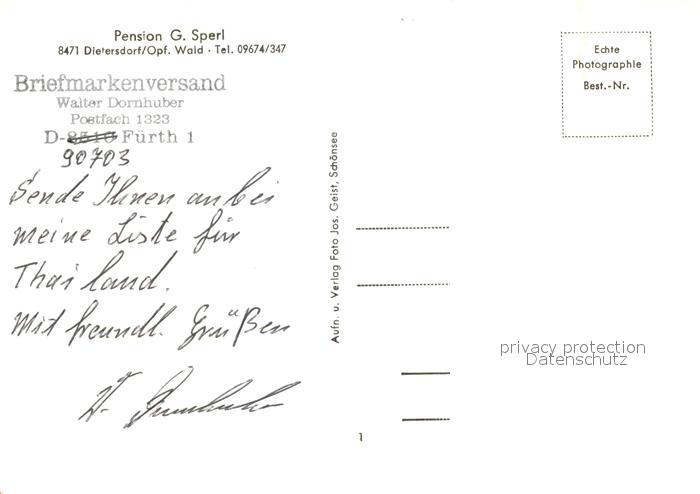 Pension G. Sperl
8471 Dietersdorf/Opf. Wald · Tel. 09674/347
Briefmarkenversand
Walter Dornhuber
Postfach 1323
D-8510 Fürth 1
90703
Sende Ihnen anbei
meine Liste für
Thailand.
Mit freundl. Grüßen
W. Dornhuber
Aufn. u. Verlag Foto Jos. Geist, Schönsee
Echte
Photographie
Best.-Nr.
privacy protection
Datenschutz
1